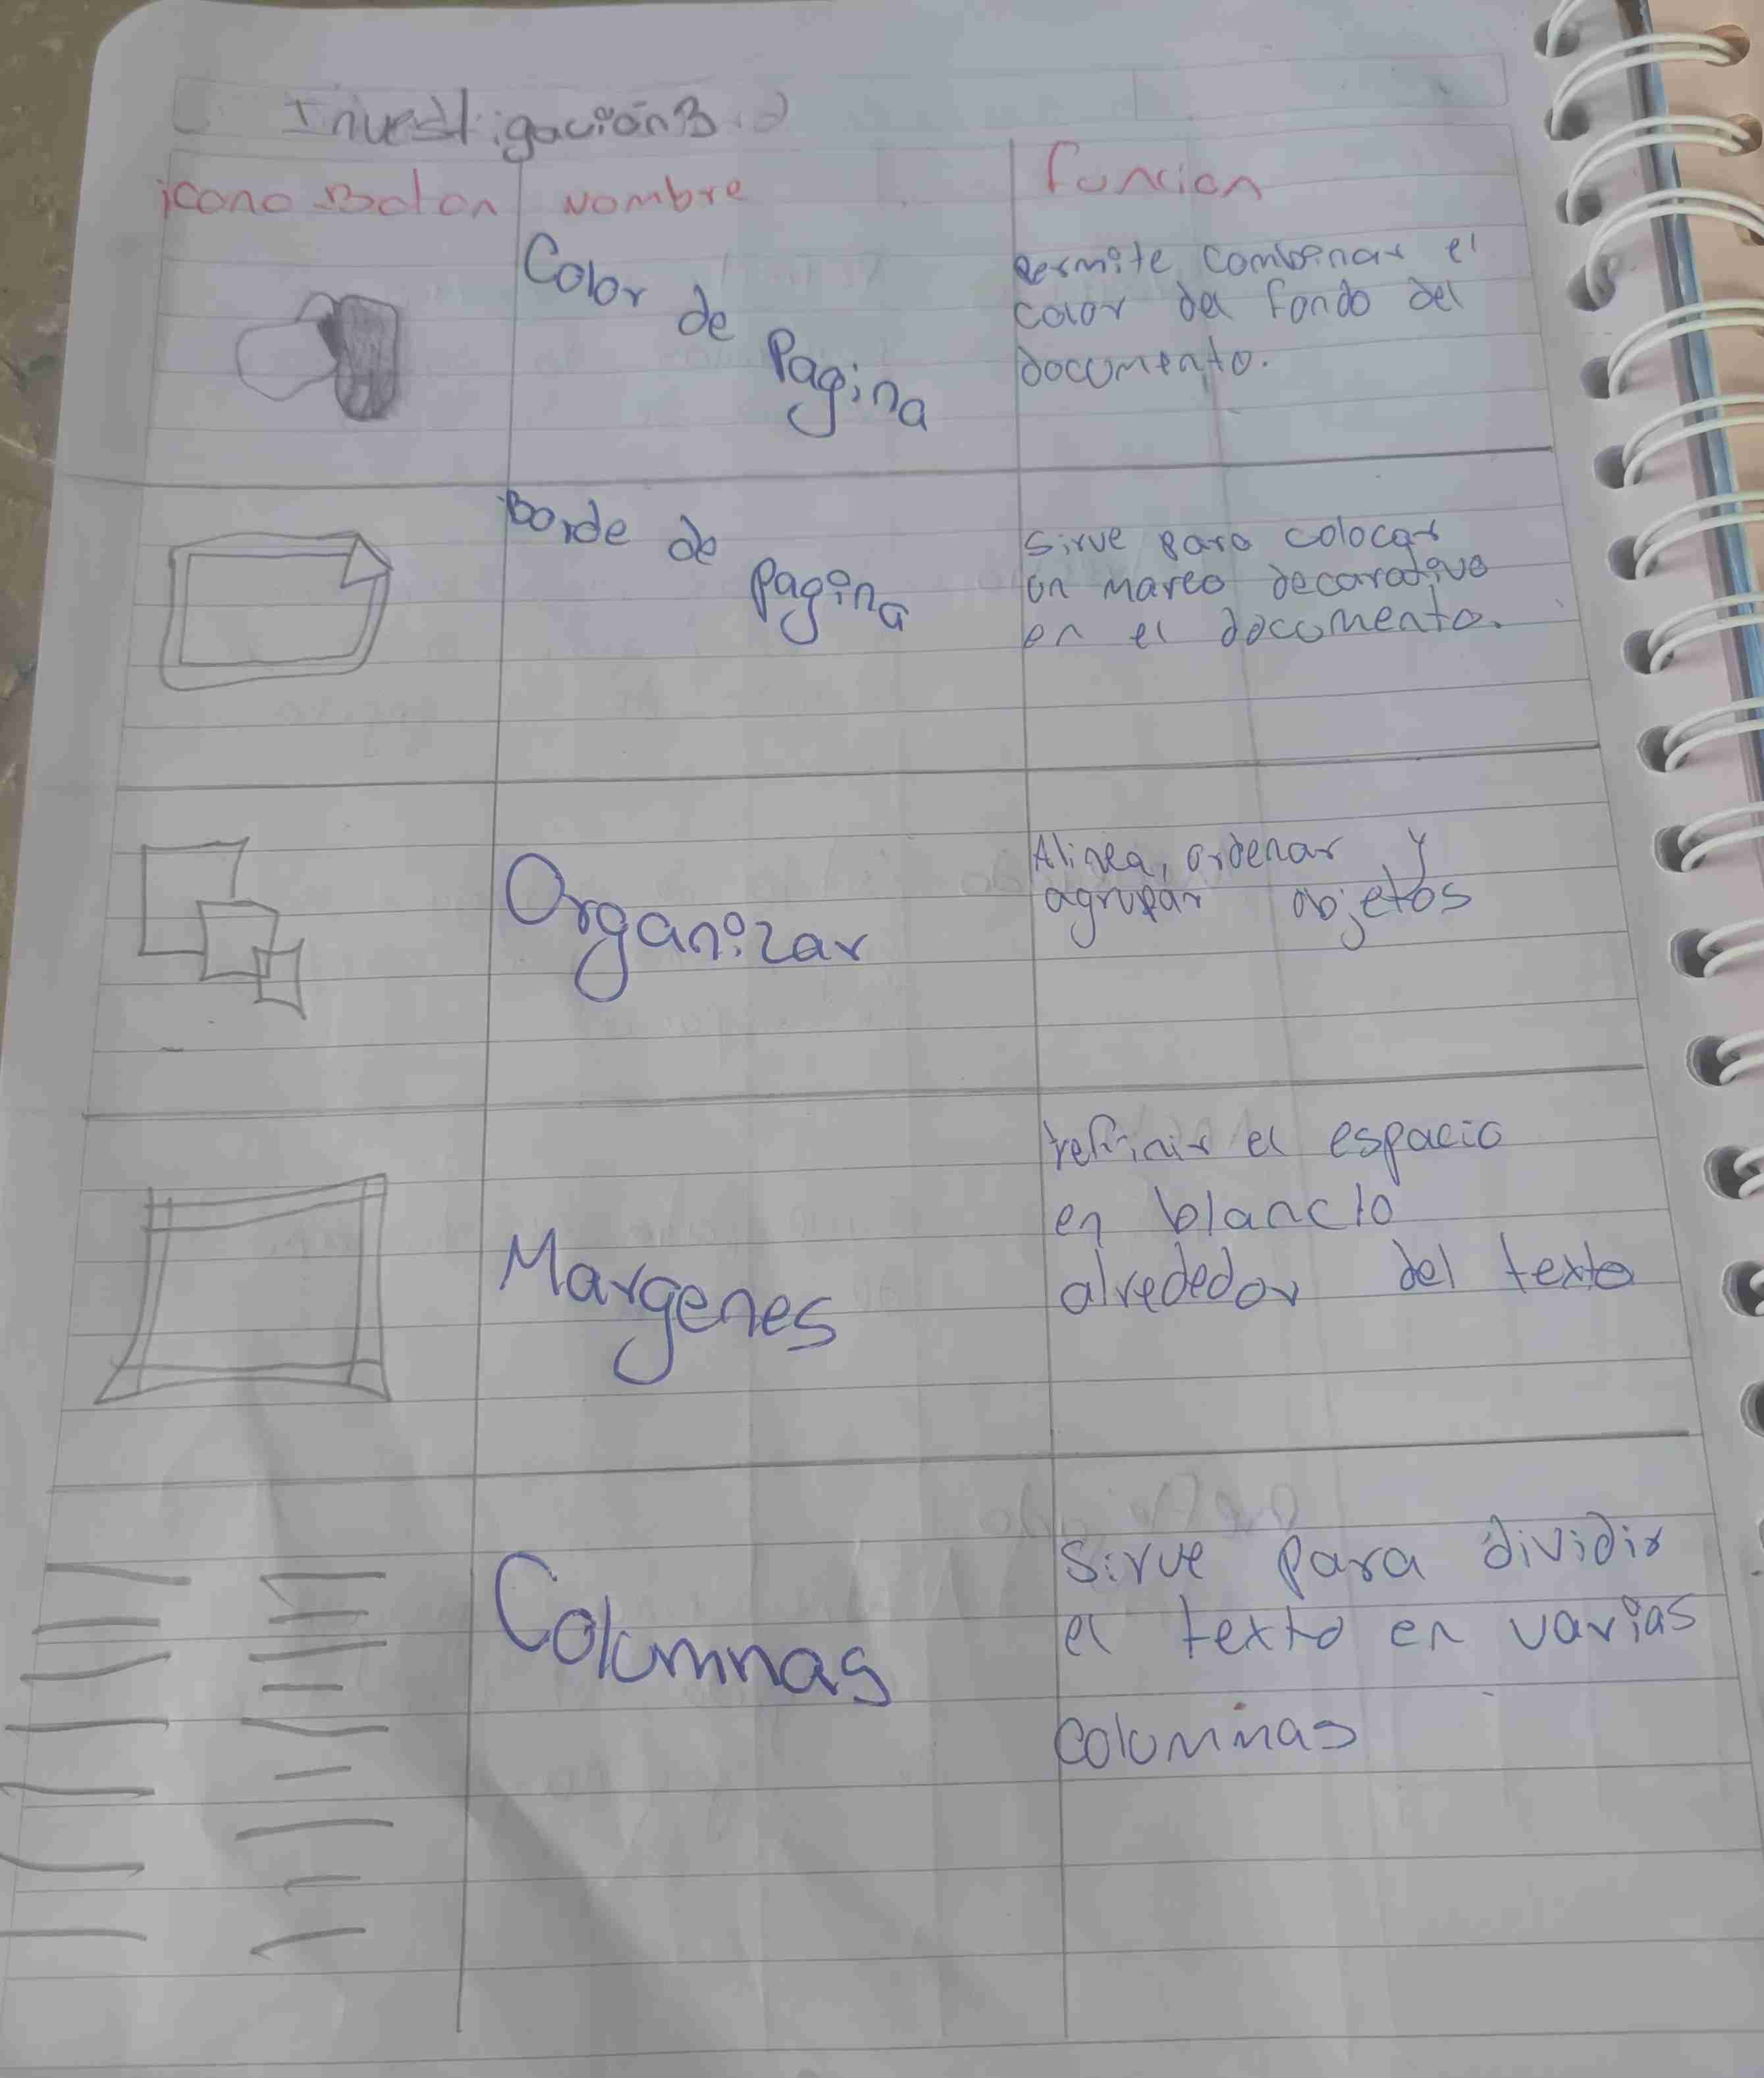 Investigación 3.2
icono Boton nombre funcion
Color de Pagina
Permite combinar el
color del fondo del
documento.
Borde de Pagina
Sirve para colocar
un marco decorativo
en el documento.
Organizar
Alinea, ordenar y
agrupar objetos
Margenes
el espacio
en blanclo
alrededor del texto
Columnas
Sirve para dividir
el texto en varias
columnas